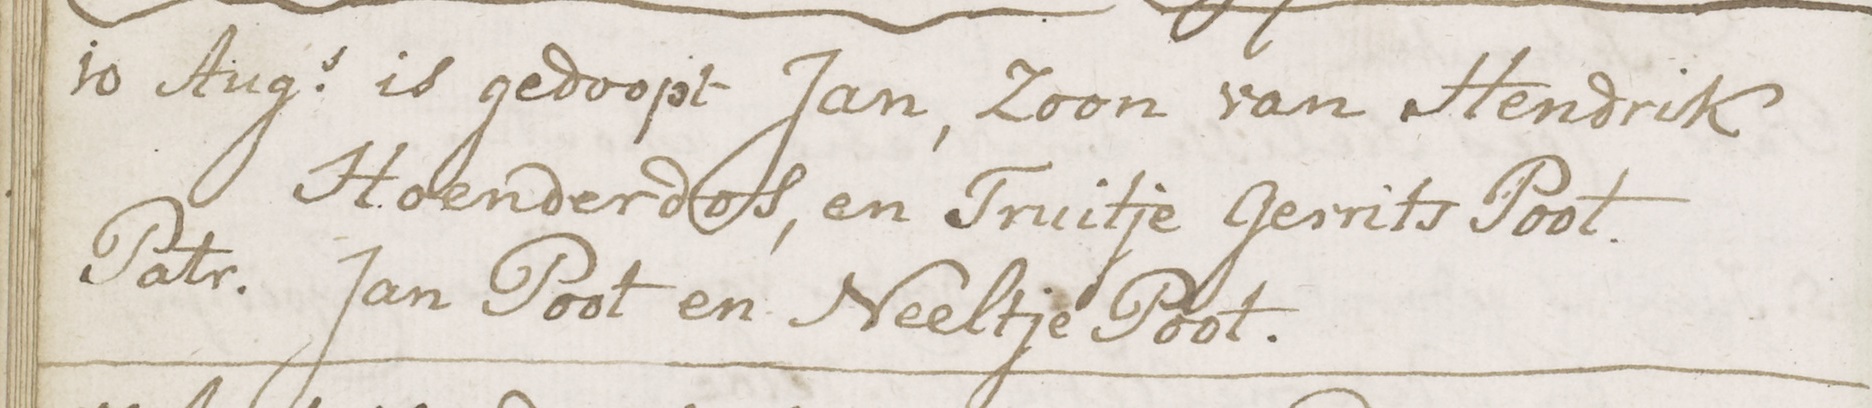 10 Aug.s is gedoopt Jan, Zoon van Hendrik
Hoenderdos, en Truitje Gerrits Poot.
Patr. Jan Poot en Neeltje Poot.